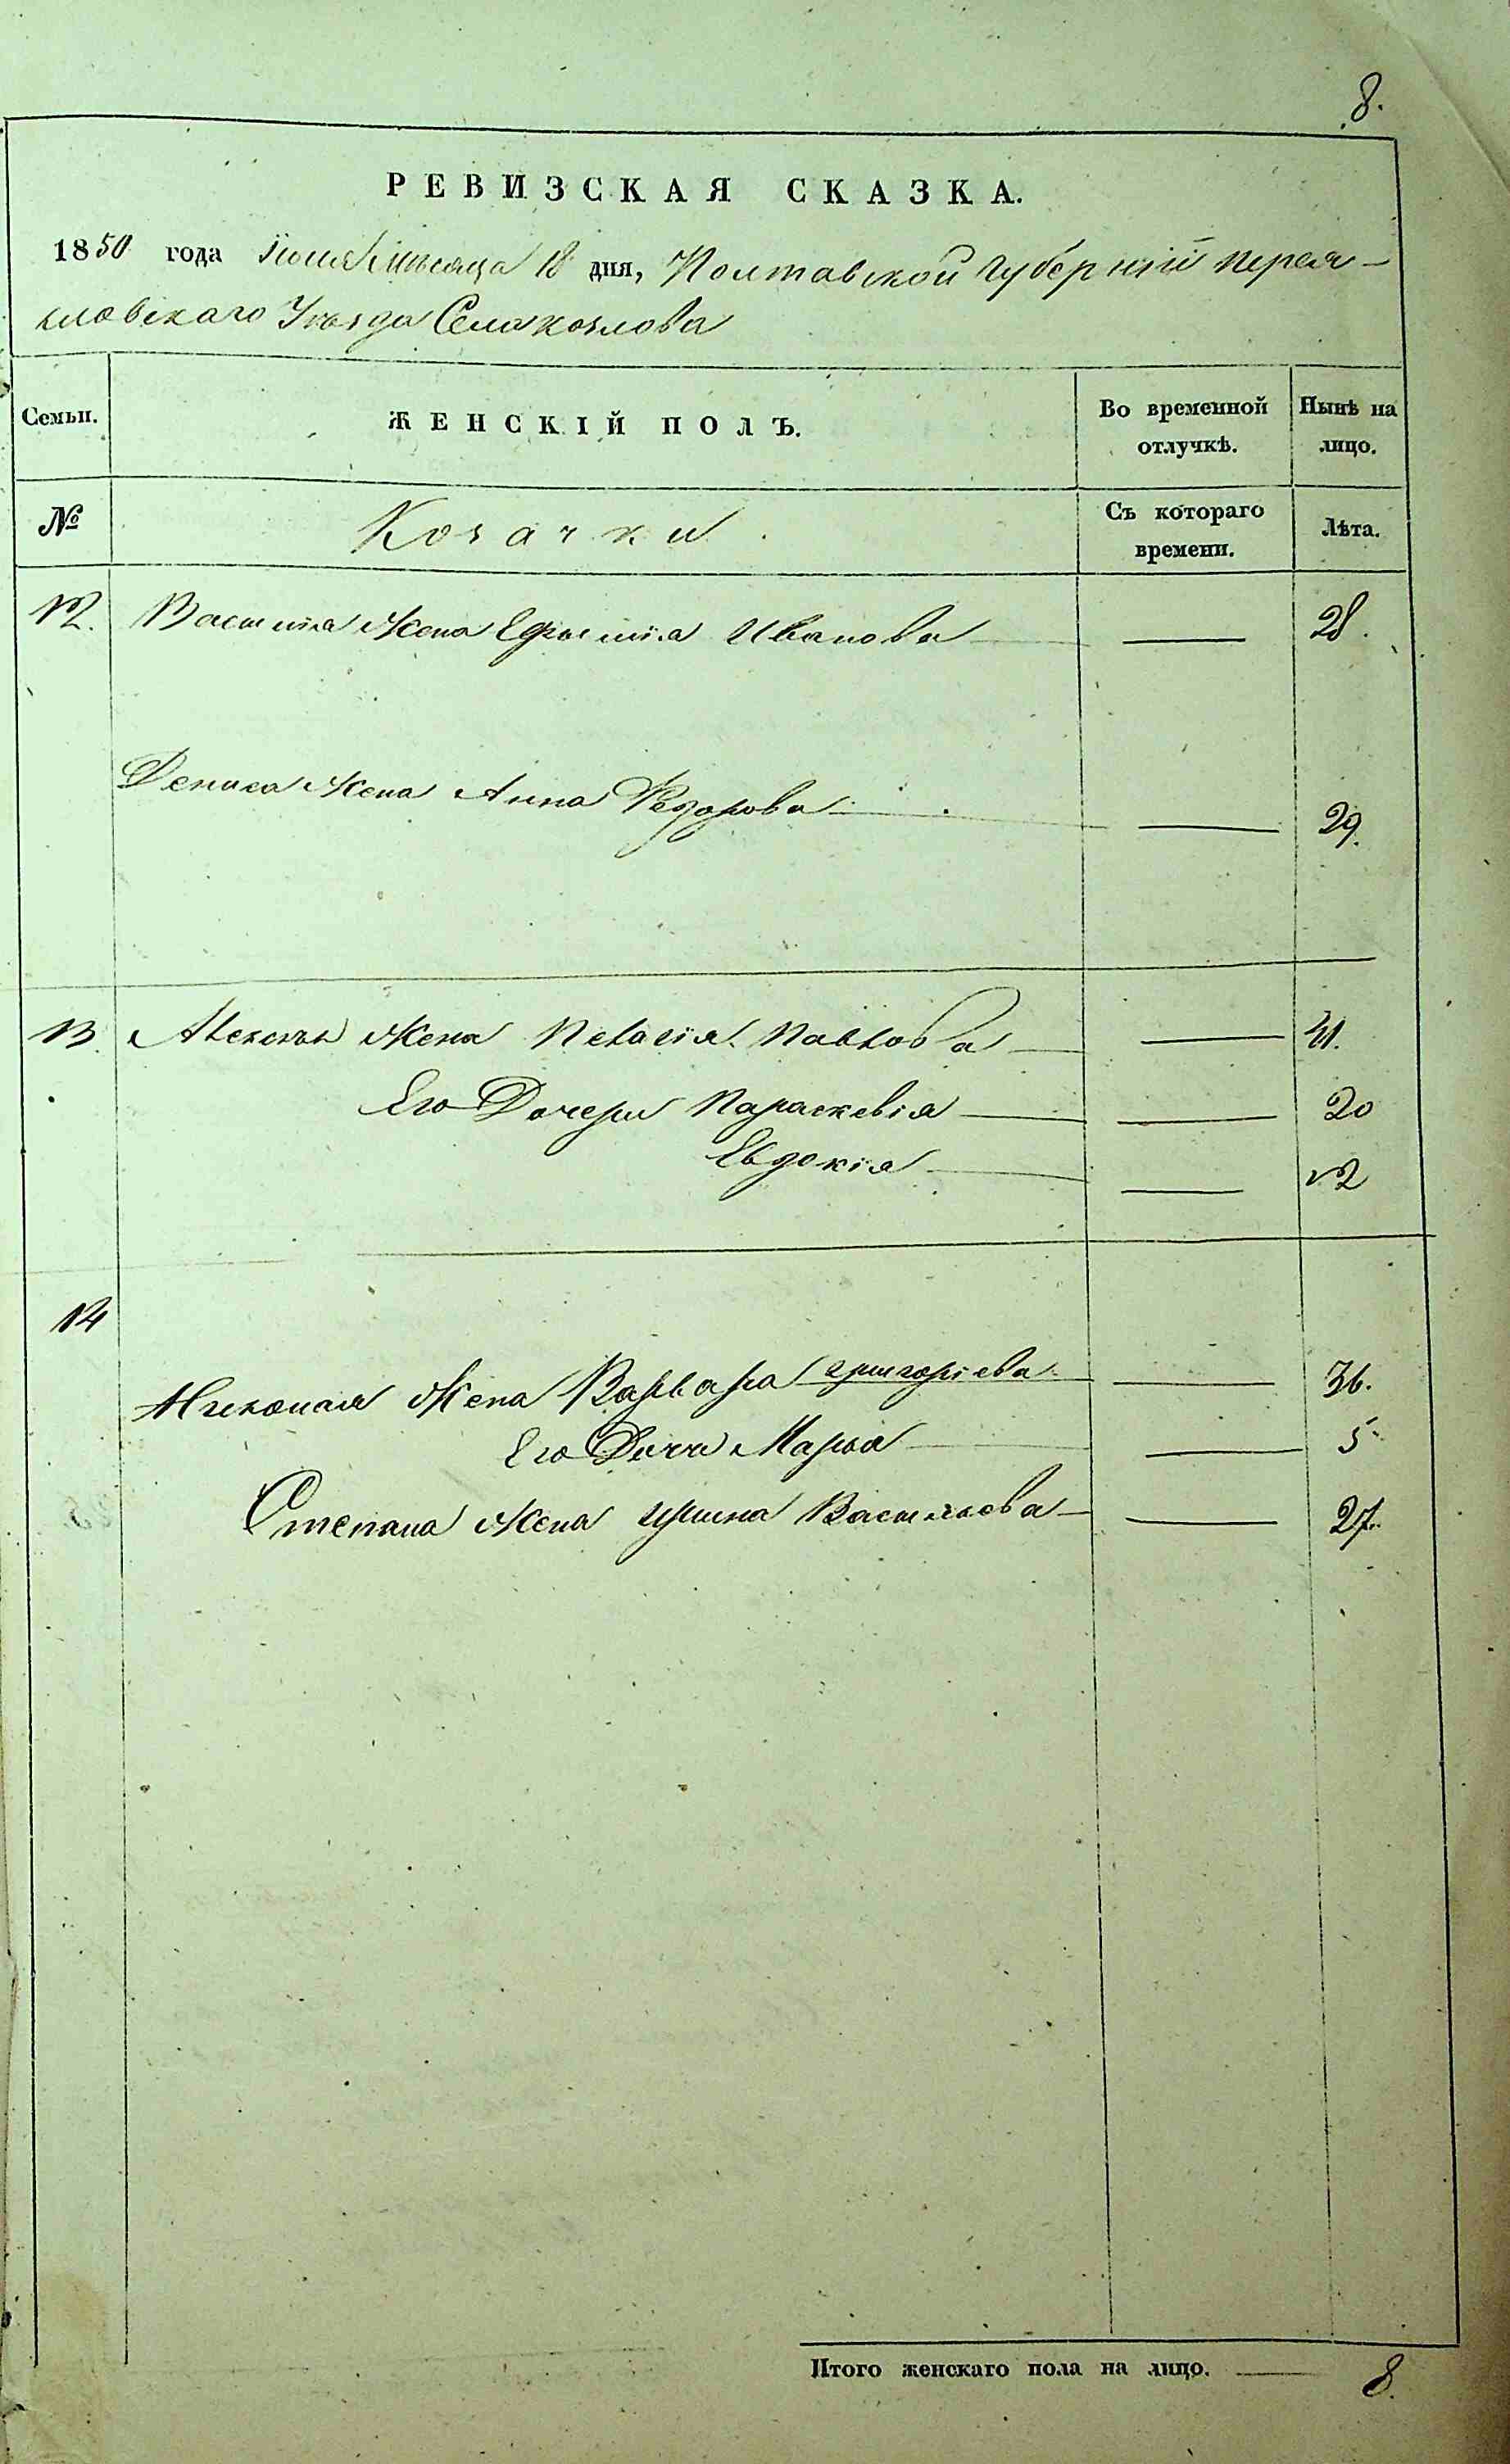 8.
РЕВИЗСКАЯ СКАЗКА.
1850 года Іюня мѣсяца 18 дня, Полтавской губерніи перея-
словскаго Уѣзда Села козлова
Семьи. ЖЕНСКІЙ ПОЛЪ. Во временной отлучкѣ. Нынѣ на лицо.
№ Козачки Съ котораго времени. Лѣта.
12. Василія Жена Ефросинія Иванова — 28.
Дениса Жена Анна Федорова — 29.
13. Алексѣя Жена Пелагія Павлова — 41.
Его Дочери Параскевія — 20
Евдокія — 12
14
Николая Жена Варвара григоріева — 36.
Его Дочь Марья — 5
Степана Жена Ирина Васильева — 27.
Итого женскаго пола на лицо. — 8.